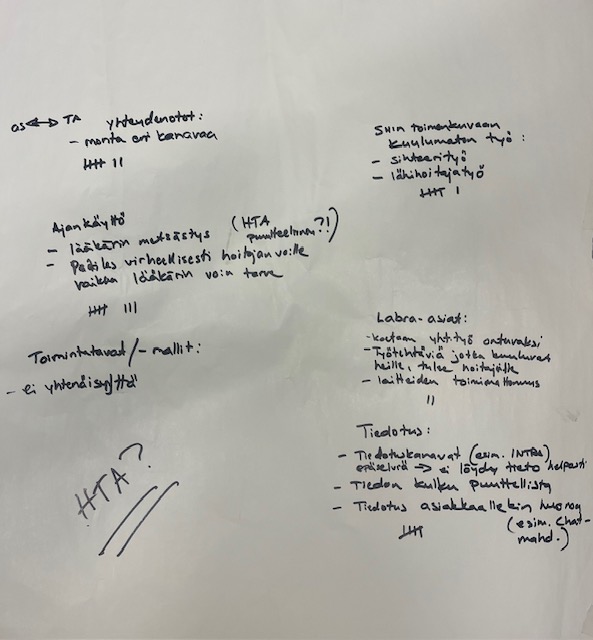 os <-> TA yhteydenotot:
- monta eri kanavaa
卌 II
Ajankäyttö
- lääkärin metsästys (HTA puutteellinen?!)
- Potilas virheellisesti hoitajan voille
vaikka lääkärin voin tarve
卌 III
Toimintatavat/-mallit:
- ei yhtenäisyyttä
HTA?
SHin toimenkuvaan
kuulumaton työ:
- sihteerityö
- lähihoitajatyö
卌 I
Labra-asiat:
- koetaan yht.työ ontuvaksi
- Työtehtäviä jotka kuuluvat
heille, tulee hoitajalle
- laitteiden toimimattomuus
II
Tiedotus:
- Tiedotuskanavat (esim. INTRA)
epäselvä -> ei löydy tieto helposti
- Tiedon kulku puutteellista
- Tiedotus asiakkaallekin huonoa
(esim. Chat-
mahd.)
卌